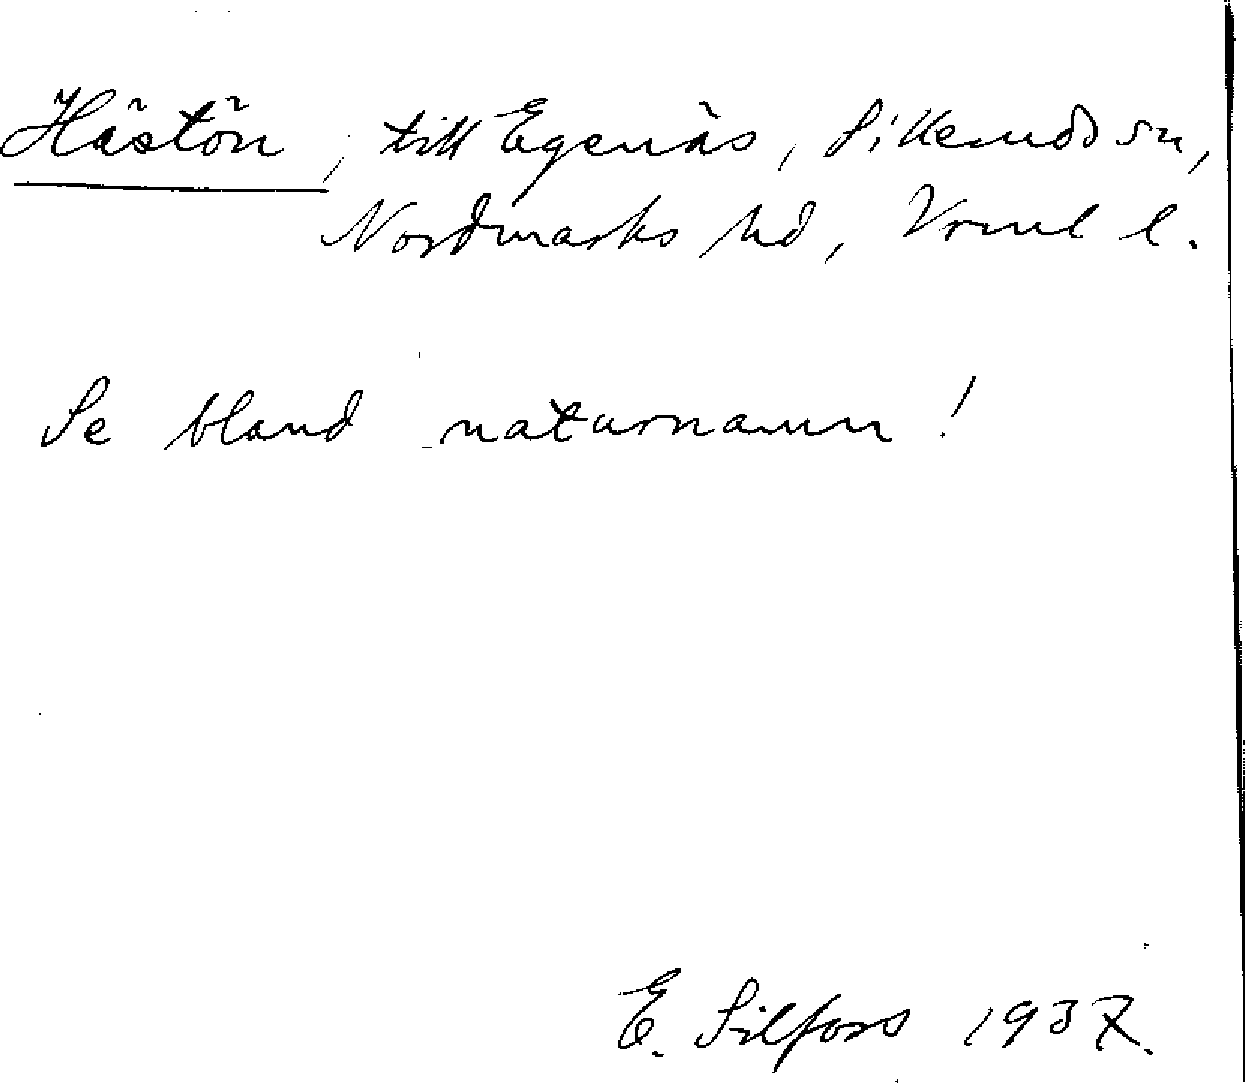 Hästön, till Egenäs, Sillemuds sn,
Nordmarks hd, Vrml l.
Se bland naturnamn!
E. Silfors 1937.